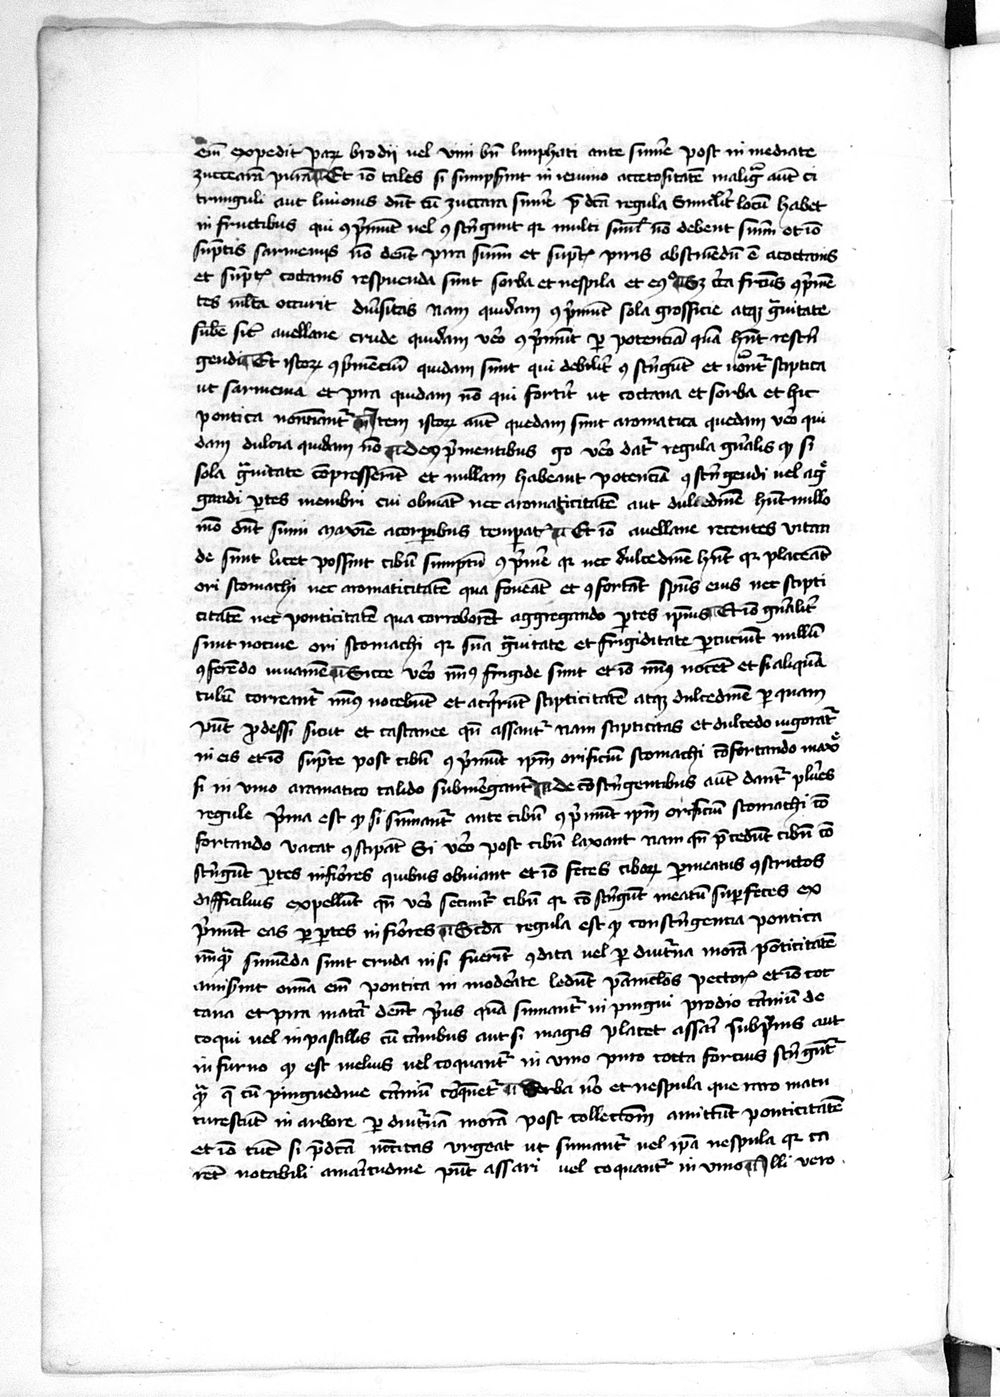 em̄ expedit paꝝ brodii vel vini bn̄ limphati ante sume᷑ post in mediate
zuccarā purā Et iō tales si sumpserint in ieiuno accetositatē malig᷑ aut ci
tranguli aut limonis dn̄t cū zuccara sume᷑ p̄dc̄a regula simlit᷑ locū habet
in fructibus qui ꝯp̄munt vel ꝯstrīgunt qr multi siml̄ nō debent sumi et iō
sūptis sarmenis nō dent pira sumi et supt᷑ piris abstinēdū ē a coctanis
et supt᷑ coctanis respuenda sunt sorba et nespila et eꝯº Sz circa fructus ꝯp̄men
tes ml̄ta occurit diūsitas nam quidam ꝯp̄munt sola grossicie atqꝫ ḡuitate
sub̄e sic᷑ auellane crude quidam vero ꝯp̄munt ꝑ potencia quā hn̄t restrī
gendi Et istoꝝ ꝯp̄mēciū quidam sunt qui debilit᷑ ꝯstrīgūt et vocāt᷑ stiptica
ut sarmenia et pira quidam nō qui fortit᷑ ut coctana et sorba et hic
pontica nominant᷑ Item istoꝝ aut quedam sunt aromatica quedam vero qui
dam dulcia quidam nō De ꝯp̄mentibus g̊ vero dat᷑ regula gn̄alis ꝙ si
sola ḡuitate compresserīt et nullam habeant potenciā ꝯstrīgendi vel ag̊
gandi ꝑtes membri cui obuiāt nec aromaticitatē aut dulcedinē hn̄t nullo
mō dn̄t sumi maxīe a corporibus temperat᷑ Et iō auellane recentes vitan
de sunt licet possint cibū sumptū ꝯp̄me᷑ qr nec dulcedinē hn̄t qr placeāt
ori stomachi nec aromaticitatē qua foueāt et ꝯfortāt sp̄us eius nec stipti
citatē nec ponticitatē qua corroborēt aggregando ꝑtes ip̄ius Et iō gn̄alit᷑
sunt nociue ori stomachi qr sua ḡuitate et frigiditate ꝑcuciunt nullū
ꝯferēdo iuuamē Sicce vero min᷒ frigide sunt et iō min᷒ nocēt et si aliquā
tulū torreant᷑ min᷒ nocebūt et acq̄rūt stipticitatē atqꝫ dulcedinē ꝑ quam
pn̄t ꝓdesse sicut et castanee qn̄ assant᷑ nam stipticitas et dulcedo uigorāt᷑
in eis et iō supte post cibū ꝯp̄munt ip̄m orificiū stomachi cōfortando maxē
si in vino aramatico calido submergant᷑ De cōstrīgentibus aut dant᷑ plures
regule p̄ma est ꝙ si sumant᷑ ante cibū ꝯp̄munt ip̄m orificiū stomachi cō
fortando vacat ꝯstipat Si vero post cibū laxant nam qn̄ p̄cedūt cibū cō
strīgūt ꝑtes inferiores quibus obuiant et iō feces ciboꝝ ꝑmeatus ꝯstrictos
difficilius expellūt qn̄ vero secunt᷑ cibū qr cōstrīgūt meatū sup feces ex
p̄munt eas ꝑ ꝑtes inferiores Secda regula est ꝙ constrīgentia pontica
nūqȝ sumēda sunt cruda nisi fuerīt ꝯdita vel ꝑ diutnā morā ponticitatē
amiserint omīa em̄ pontica in moderate ledūt panniclos pectorꝭ et iō coc
tana et pira matura dent p̄us quā sumant᷑ in pingui prodio carniū de
coqui vel in pastillis cū carnibus aut si magis placet assari sub prunis aut
in furno ꝙ est melius vel coquant᷑ in vino puro cocta forcius strīgūt
quā q̄ cū pinguedine carniū coquēt᷑ Sorba vero et nespula que raro matu
turescūt in arbore ꝑ diutnā morā post collectōm amittūt ponticitatē
et iō tūc si p̄dc̄a nc̄citas urgeat ut sumant᷑ vel ip̄a nespula qr ca
rēt notabili amaritudine pn̄t assari vel coquant᷑ in vino Illi vero